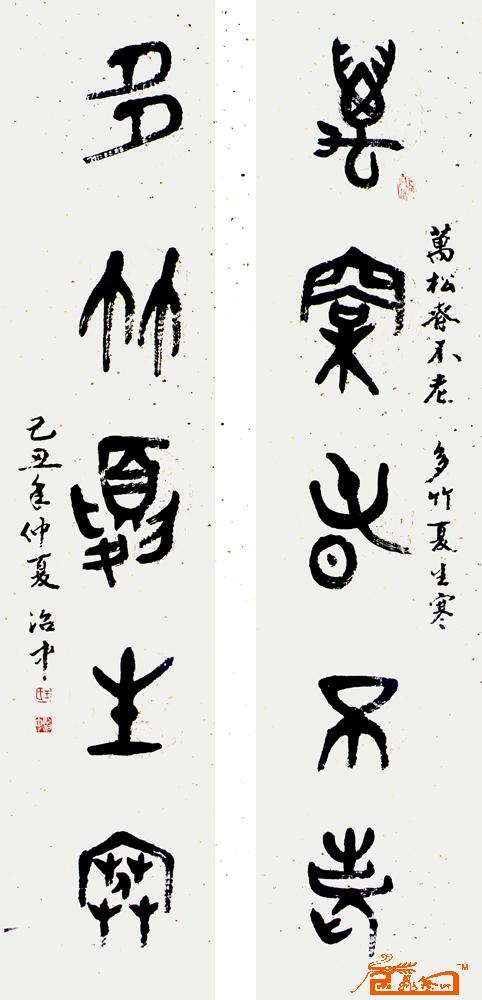 萬松春不老
萬松春不老 多竹夏生寒
多竹夏生寒
己丑年仲夏 治中